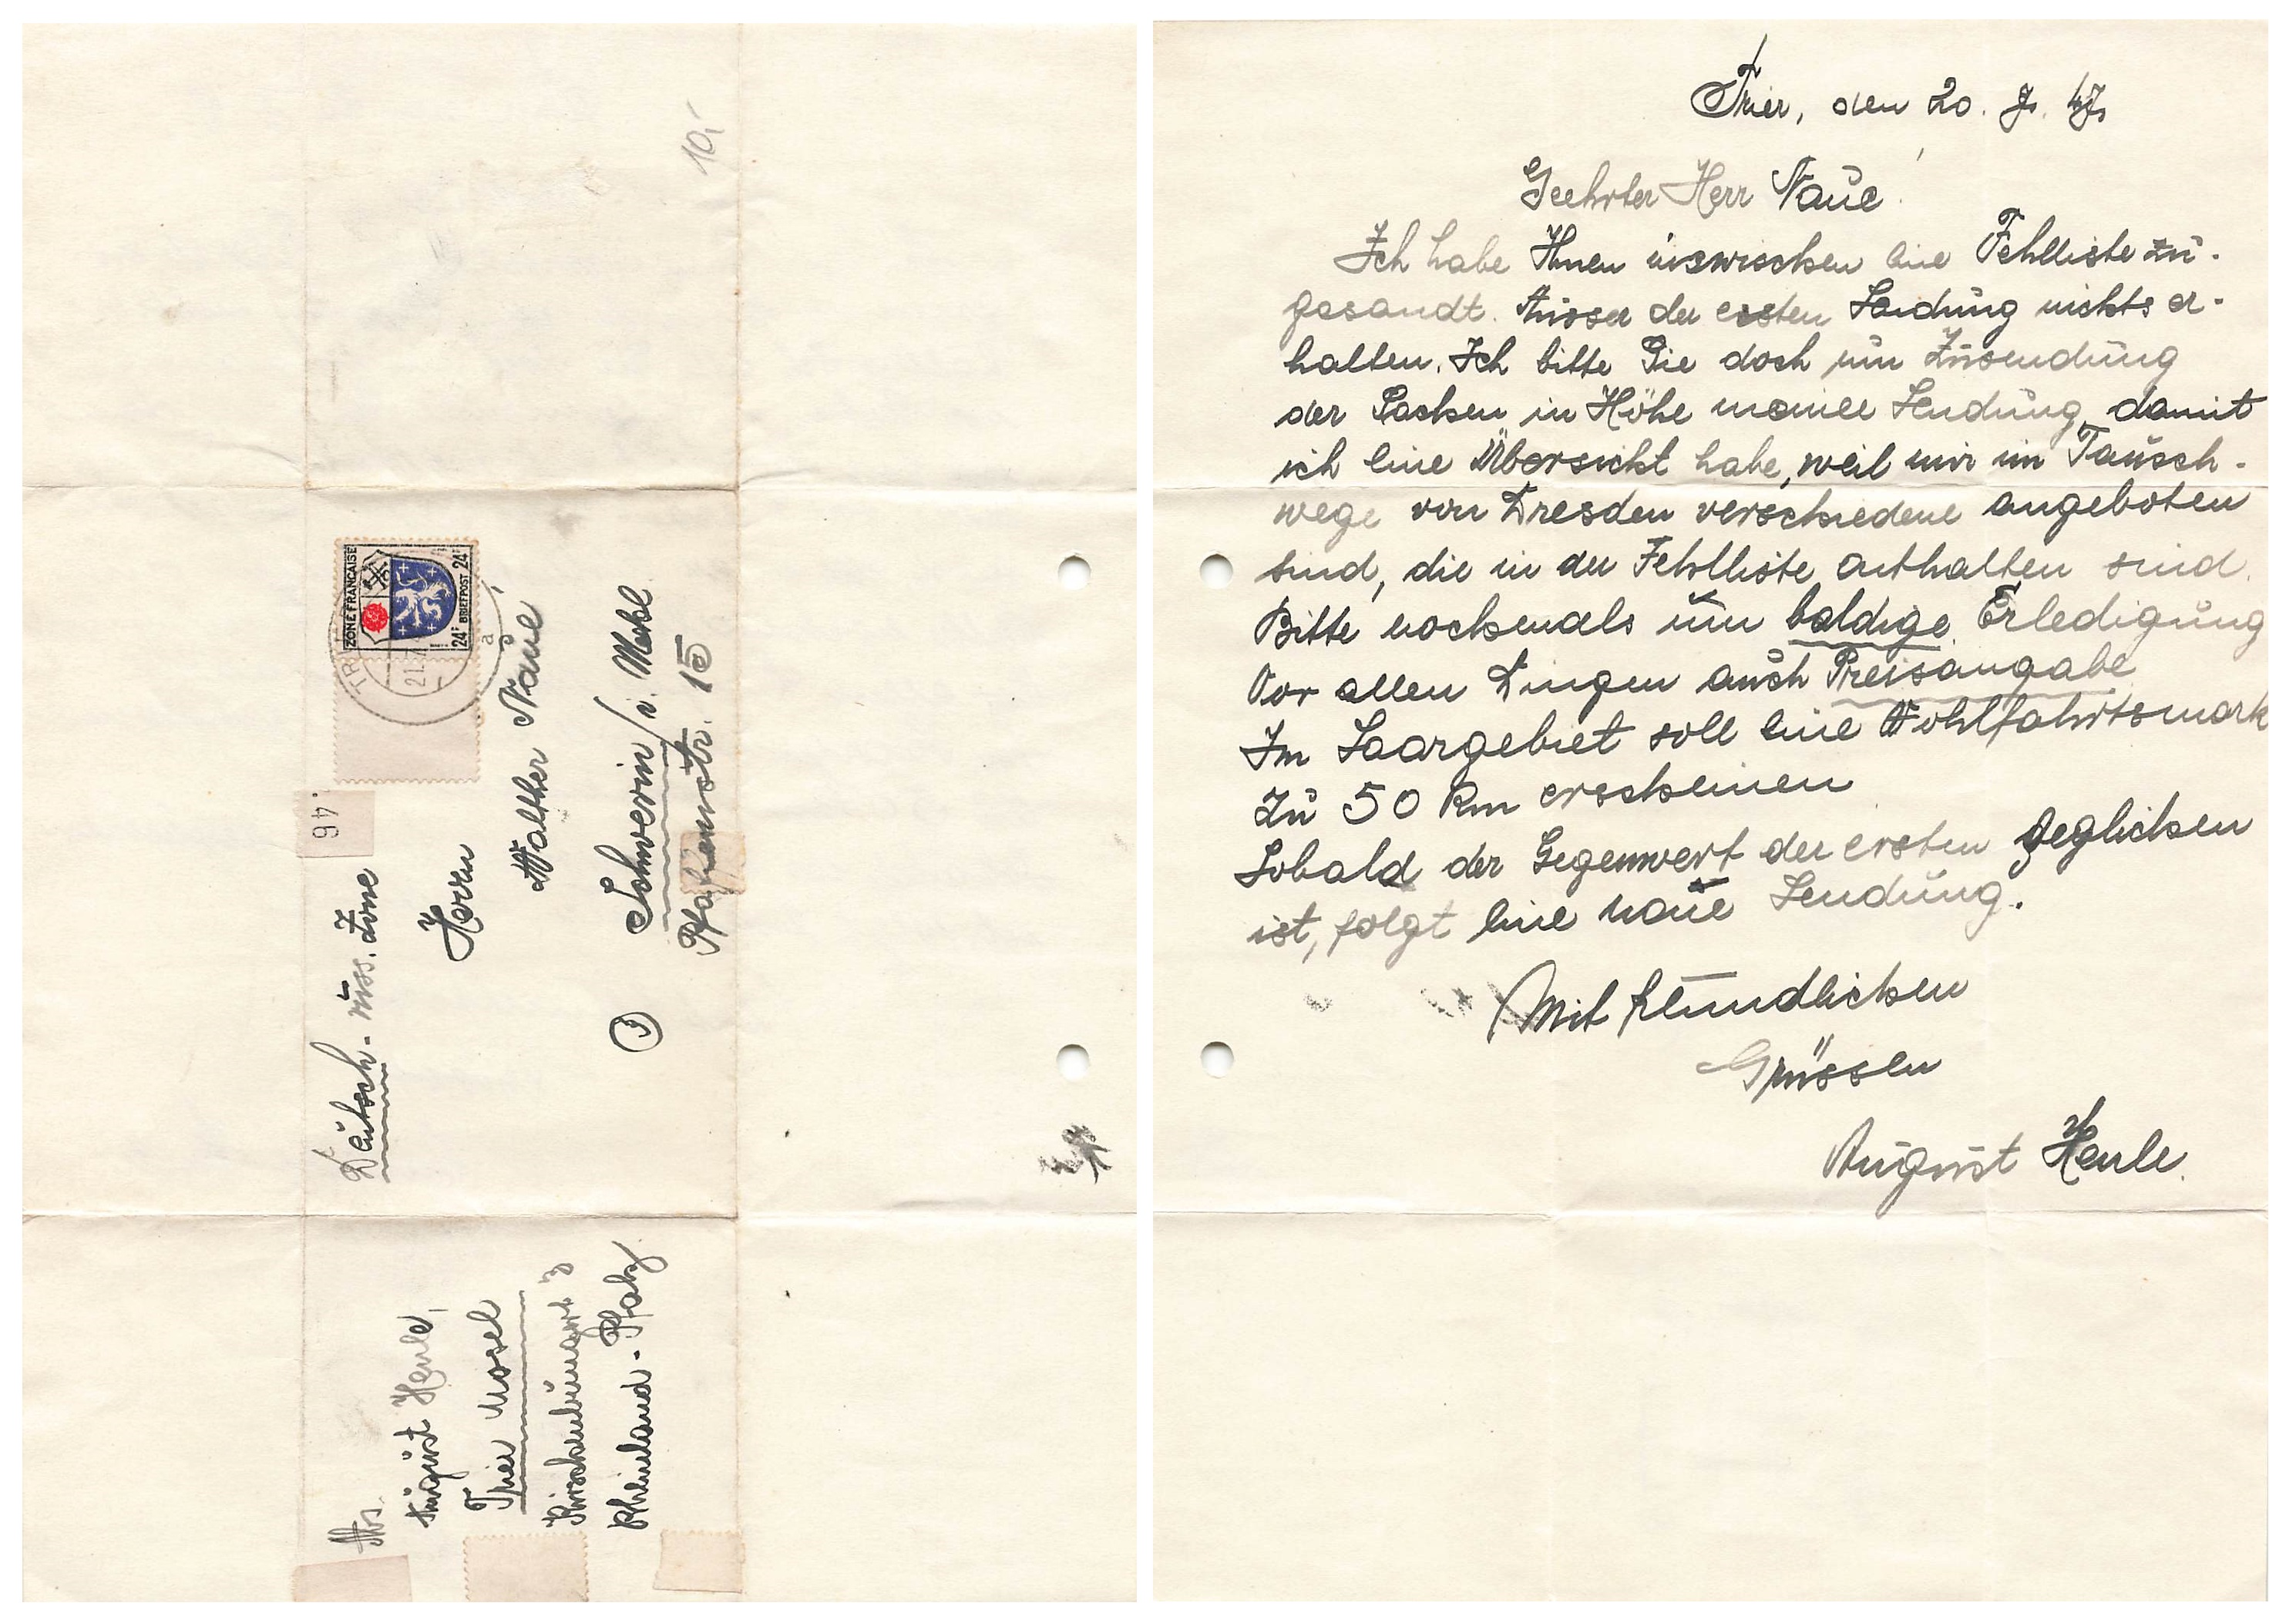 10,-
ZONE FRANÇAISE
24 BRIEFPOST 24
TRI
21.7
a
46
Deutsch - russ. Zone
Herrn
Walther Naue
Schwerin / i. Mekl.
str. 15
Abs.
August Henle,
Trier Mosel
Rheinland-Pfalz
Trier, den 20. 7. 47.
Geehrter Herr Naue!
Ich habe Ihnen inzwischen eine Fehlliste zu-
gesandt. Ausser der ersten Sendung nichts er-
halten. Ich bitte Sie doch um Zusendung
der Sachen in Höhe meiner Sendung, damit
ich eine Übersicht habe, weil mir im Tausch-
wege von Dresden verschiedene angeboten
sind, die in der Fehlliste enthalten sind.
Bitte nochmals um baldige Erledigung
Vor allen Dingen auch Preisangabe
Im Saargebiet soll eine Wohlfahrtsmark
zu 50 Rm erscheinen
Sobald der Gegenwert der ersten geglichen
ist, folgt eine neue Sendung.
Mit freundlichen
Grüssen
August Henle.